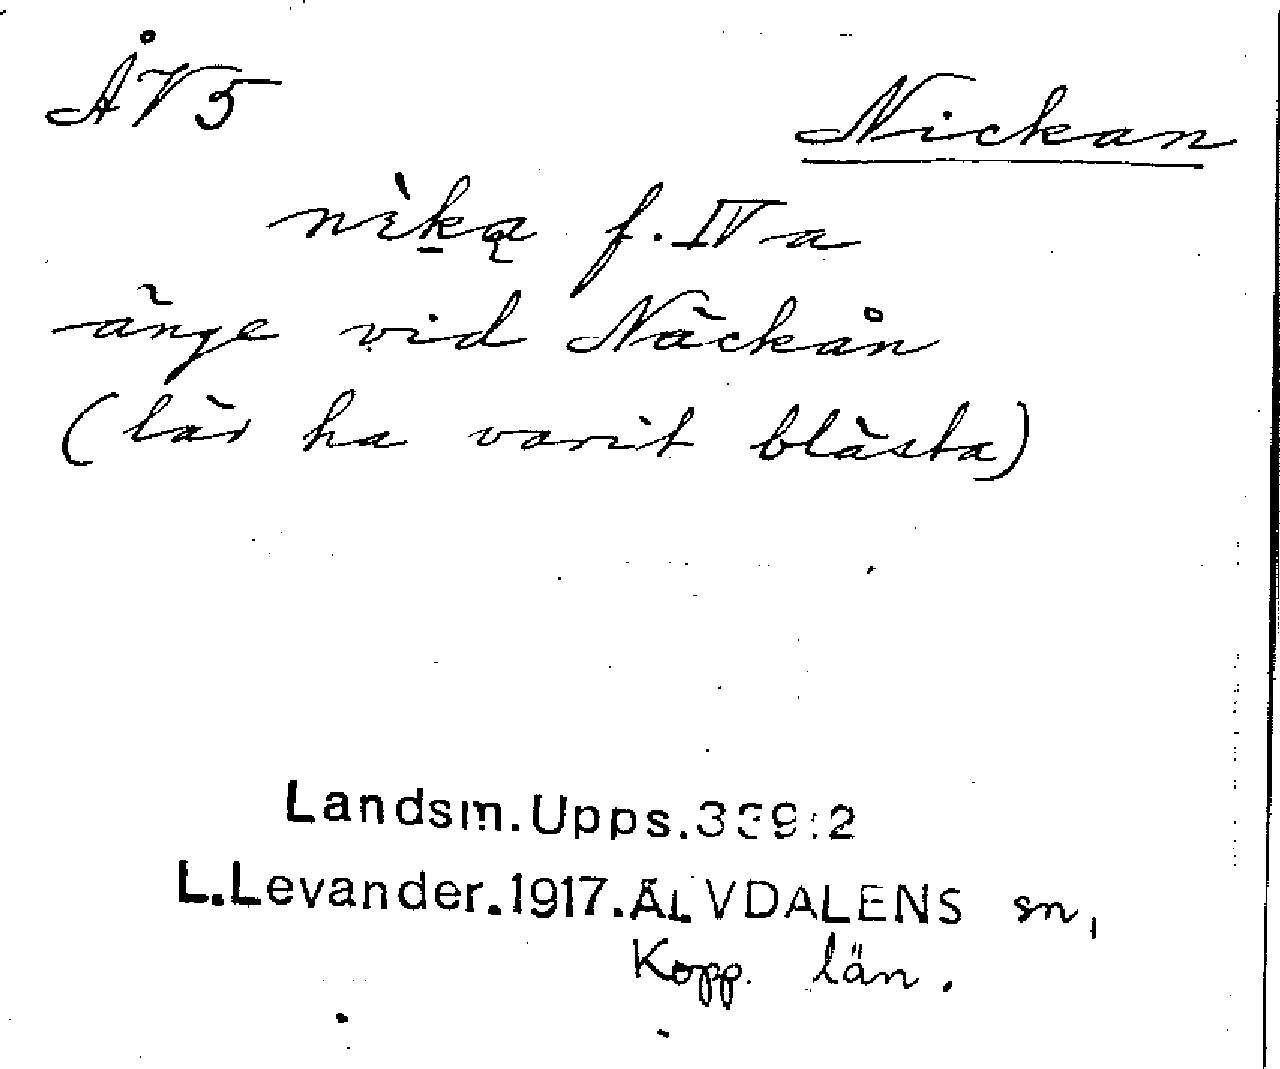 ÅV5
Nickan
nìk̲ą f. IV a
änge vid Näckån
(lär ha varit blästa)
Landsm.Upps.339:2
L.Levander.1917.ÄLVDALENS sn,
Kopp. län.